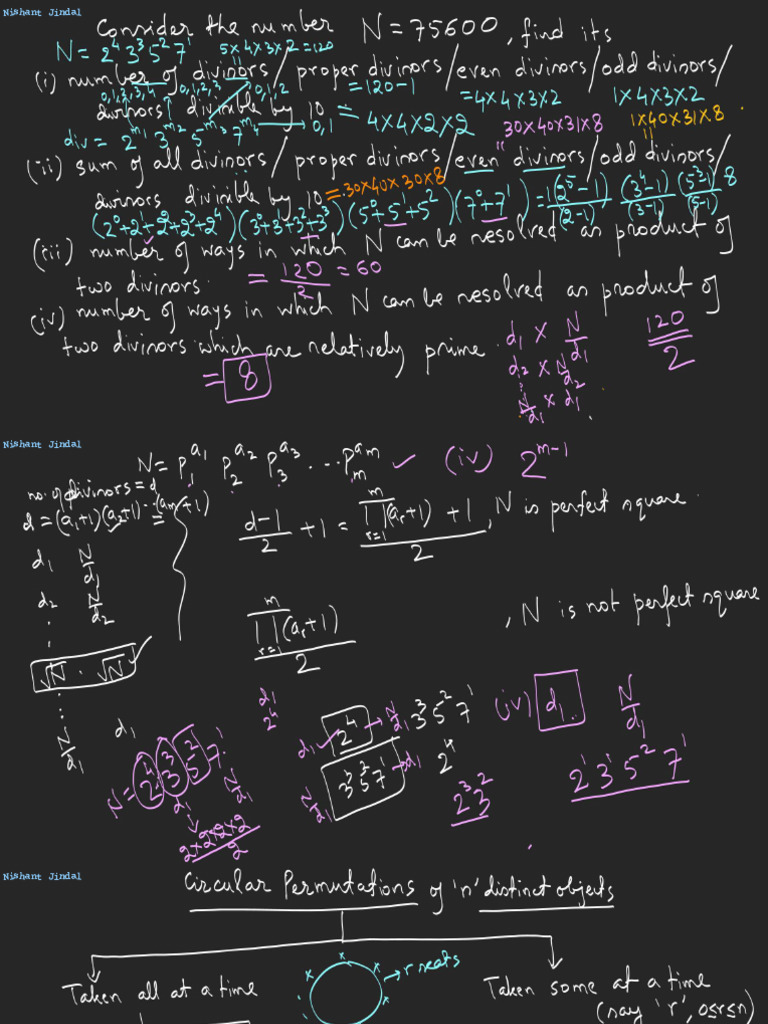 Nishant Jindal
Consider the number N = 75600, find its
N = 2⁴ 3³ 5² 7¹ 5×4×3×2 = 120
(i) number of divisors / proper divisors / even divisors / odd divisors /
0,1,2,3,4 0,1,2,3 0,1,2 = 120-1 = 4×4×3×2 1×4×3×2
divisors divisible by 10 = 4×4×2×2
div = 2^m₁ 3^m₂ 5^m₃ 7^m₄ → 0,1 30×40×31×8 1×40×31×8
(ii) sum of all divisors / proper divisors / even divisors / odd divisors /
divisors divisible by 10 = 30×40×30×8
(2⁰+2¹+2²+2³+2⁴)(3⁰+3¹+3²+3³)(5⁰+5¹+5²)(7⁰+7¹) = 1(2⁵-1)/(2-1) (3⁴-1)/(3-1) (5³-1)/(5-1) 8
(iii) number of ways in which N can be resolved as product of
two divisors. = 120/2 = 60
(iv) number of ways in which N can be resolved as product of
two divisors which are relatively prime.
= 8
d₁ × N/d₁ 120/2
d₂ × N/d₂
N/d₁ × d₁
Nishant Jindal
N = p₁^a₁ p₂^a₂ p₃^a₃ ... p_m^a_m ✓ (iv) 2^(m-1)
no. of divisors = d
d = (a₁+1)(a₂+1)...(a_m+1)
(d-1)/2 + 1 = (∏_{r=1}^{m}(a_r+1) + 1)/2, N is perfect square.
d₁ N/d₁
d₂ N/d₂
∏_{r=1}^{m}(a_r+1)/2 , N is not perfect square
√N · √N
N/d₁ d₁
d₁
2⁴
d₁ ✓ 2⁴ → N/d₁ 3³ 5² 7¹ (iv) d₁ N/d₁
N/d₁ 3³ 5² 7¹ → d₁ 2⁴
2³ 3² 2¹ 3¹ 5² 7¹
N = 2⁴ 3³ 5² 7¹
d₁ N/d₁
2×2×2×2/2
Nishant Jindal
Circular Permutations of 'n' distinct objects
Taken all at a time
→ r seats
Taken some at a time
(say 'r', 0≤r≤n)